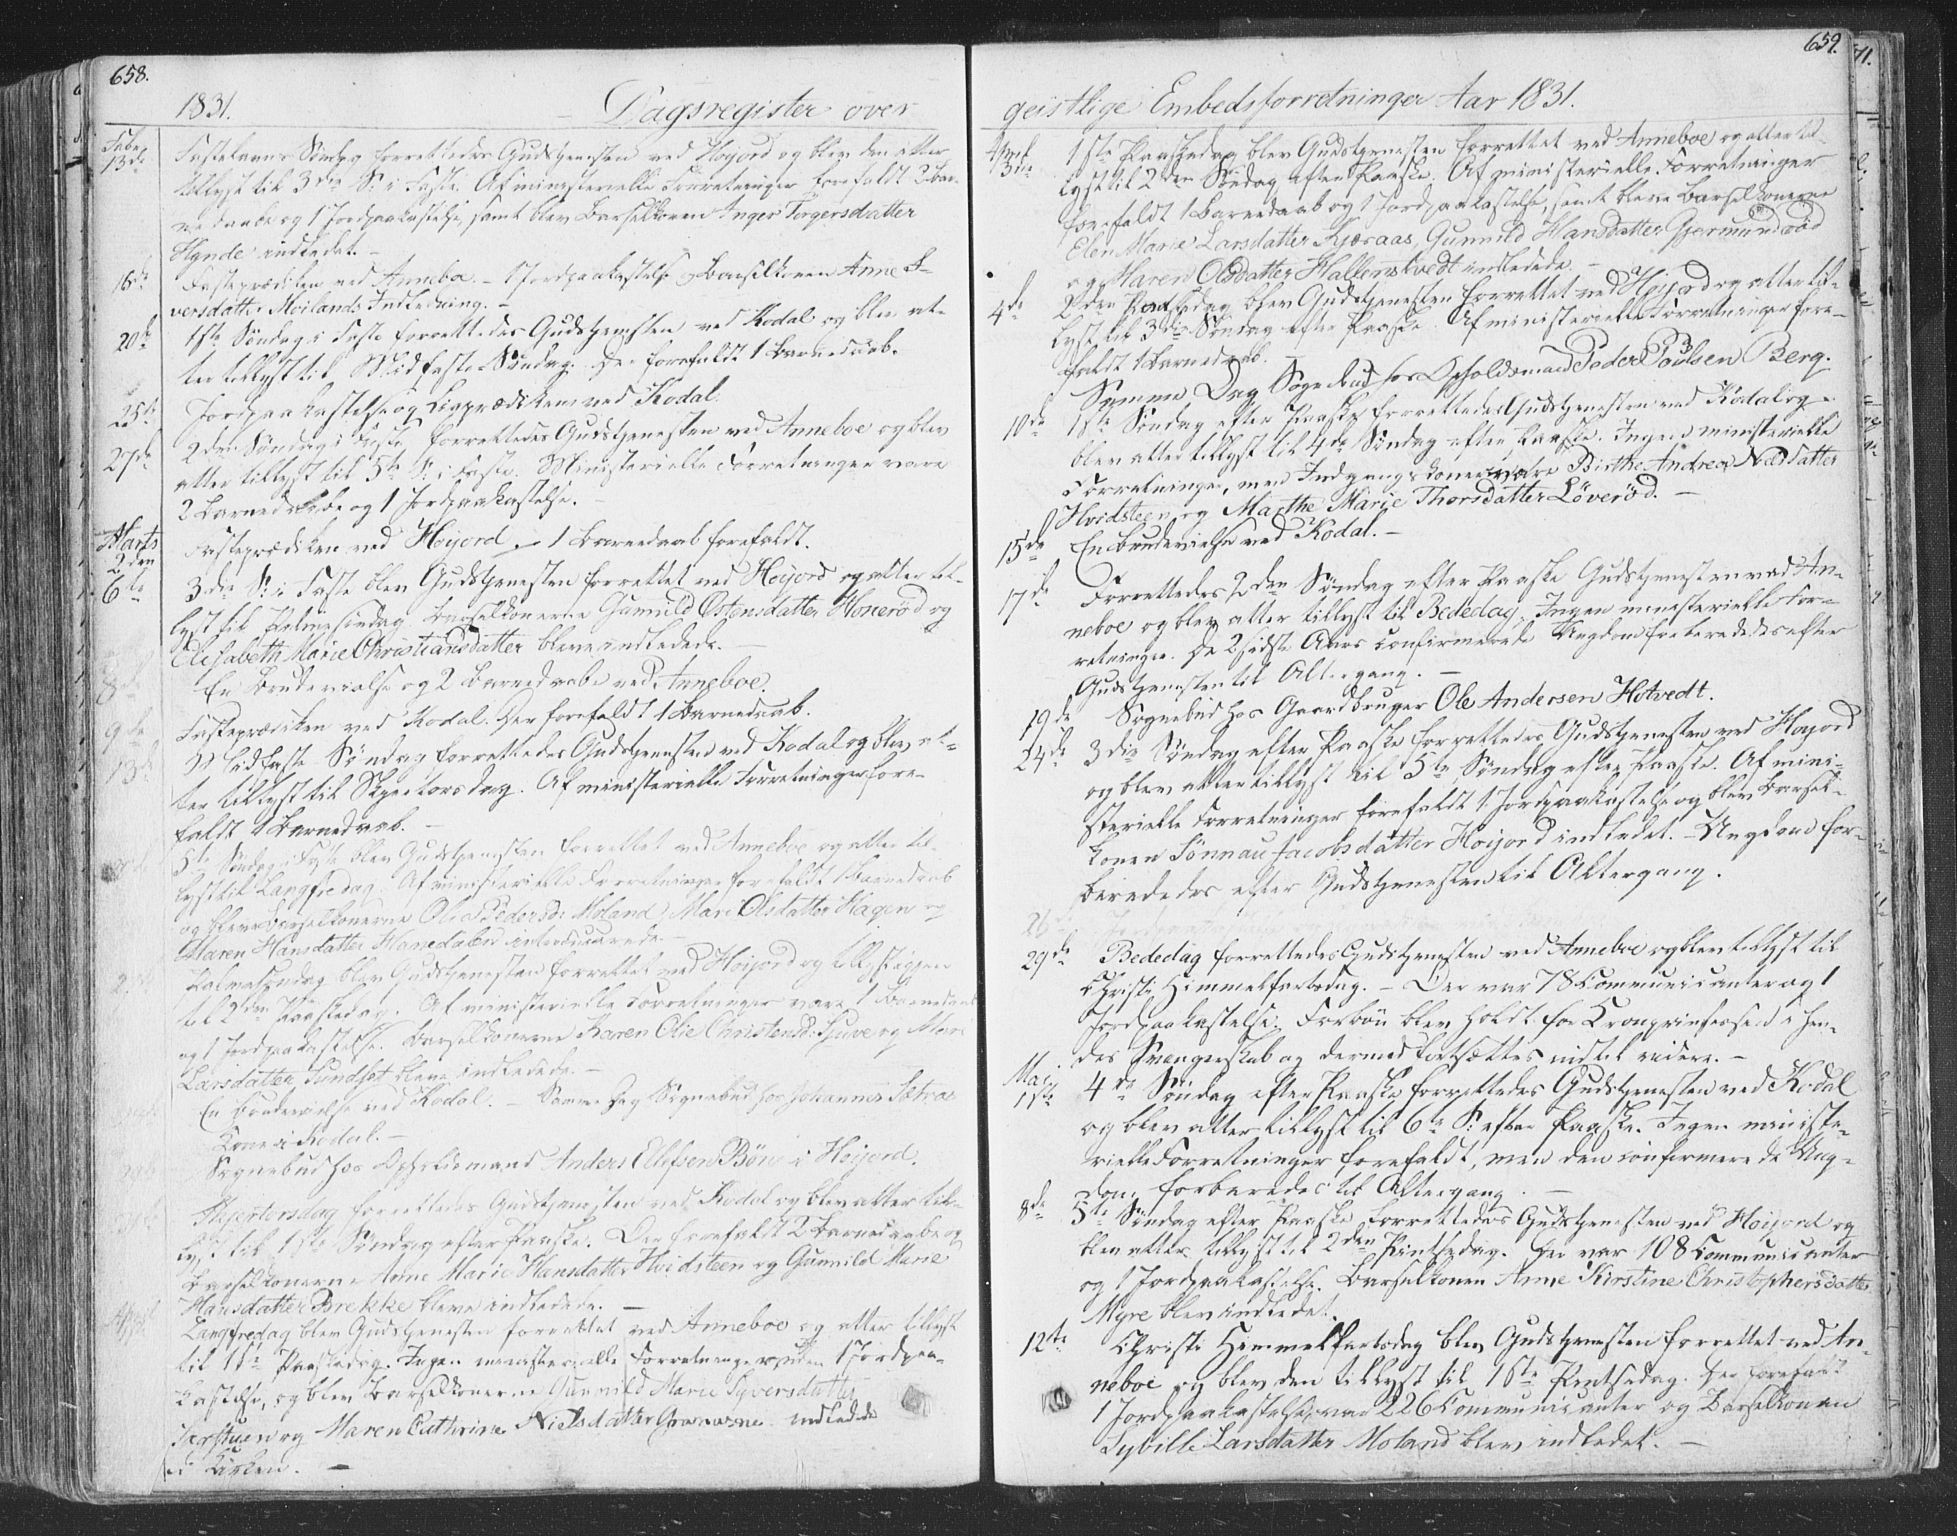 658.
1831. Dagsregister over
Febr.
13de Fastelavns Søndag forrettedes Gudstjenesten ved Høyord og blev den atter
tillyst til 3die S: i Faste. Af ministerielle Forretninger forefaldt 3 Bar-
nedaabe og 1 Jordpaakastelse, samt blev Barselkonen Inger Torgersdatter
Hynde indledet. –
16de Fasteprædiken ved Anneboe. – 1 Jordpaakastelse og Barselkonen Anne
versdatter Moilands Indledning. –
20de 1ste Søndag i Faste forrettedes Gudstjenesten ved Kodal og blev at-
ter tillyst til Midfaste Søndag. Der forefaldt 1 Barnedaab.
25de Jordpaakastelse og Liigprædiken ved Kodal.
27de 2den Søndag i Faste forrettedes Gudstjenesten ved Anneboe og blev
atter tillyst til 5te S: i Faste. Ministerielle Forretninger vare
2 Barnedaabe og 1 Jordpaakastelse. –
Marts
2den Fasteprædiken ved Høijord. – 1 Barnedaab forefaldt.
6te 3die S: i Faste blev Gudstjenesten forrettet ved Høijord og atter til-
lyst til Palmesøndag. Barselkonerne Gunnild Ostensdatter Honerød og
Elisabeth Marie Christiansdatter bleve indledede. –
8de En Brudevielse og 2 Barnedaabe ved Anneboe.
9de Fasteprædiken ved Kodal. Der forefaldt 1 Barnedaab.
13de Midfaste Søndag forrettedes Gudstjenesten ved Kodal og blev at-
ter tillyst til Skjertorsdag. Af ministerielle Forretninger fore-
faldt 1 Barnedaab. –
5te Søndag i Faste blev Gudstjenesten forrettet ved Anneboe og atter til-
lyst til Langfredag. Af ministerielle Forretninger forefaldt 1 Barnedaab
og bleve Barselkonerne Olie Pedersd: Moland, Mari Olsdatter Hagen og
Maren Hansdatter Hanedalen introducerede. –
Palmesøndag blev Gudstjenesten forrettet ved Høijord og tillyst igjen
til 2den Paaskedag. Af ministerielle Forretninger vare 1 Barnedaab
og 1 Jordpaakastelse. Barselkonerne Karen Olie Christensd: og
Larsdatter Sundset bleve indledede. –
En Brudevielse ved Kodal. – Samme Dag Sognebud hos Johannes Sætres
Kone i Kodal. –
Sognebud hos Opholdsmand Anders Ellefsen Bøen i Høijord.
Skjertorsdag forrettedes Gudstjenesten ved Kodal og blev atter til-
lyst til 1ste Søndag efter Paaske. Der forefaldt 2 Barnedaabe og
Barselkonerne Anne Marie Hansdatter Hvidsteen og Gunnild Marie
Hansdatter Brekke bleve indledede. –
April
Langfredag blev Gudstjenesten forrettet ved Anneboe og atter tillyst
til 1ste Paaskedag. Ingen ministerielle Forretninger uden 1 Jordpaa-
kastelse, og bleve Barselkonerne Gunnild Marie Syversdatter
og Maren Cathrine Nielsdatter indledede
i Kirken. –
659.
geistlige Embedsforretninger Aar 1831.
April
3die 1ste Paaskedag blev Gudstjenesten forrettet ved Anneboe og atter til-
lyst til 2den Søndag efter Paaske. Af ministerielle Forretninger
forefaldt 1 Barnedaab og 1 Jordpaakastelse, samt bleve Barselkonerne
Elen Marie Larsdatter Kjæraas, Gunnild Hansdatter Gjermundrød
og Maren Olsdatter Hallenstvedt indledede. –
4de 2den Paaskedag blev Gudstjenesten forrettet ved Høijord og atter til-
lyst til 3die Søndag efter Paaske. Af ministerielle Forretninger fore-
faldt 1 Barnedaab.
Samme Dag Sognebud hos Opholdsmand Peder Poulsen Berg.
10de 1ste Søndag efter Paaske forrettedes Gudstjenesten ved Kodal og
blev atter tillyst til 4de Søndag efter Paaske. Ingen ministerielle
Forretninger, men Indgangskonerne vare Birthe Andrea Nælsdatter
Hvidsteen og Marthe Marie Thorsdatter Løverød. –
15de En Brudevielse ved Kodal. –
17de Forrettedes 2den Søndag efter Paaske Gudstjenesten ved An-
neboe og blev atter tillyst til Bededag. Ingen ministerielle For-
retninger. De 2 sidste Aars confirmerede Ungdom forberededes efter
Gudstjenesten til Altergang. –
19de Sognebud hos Gaardbruger Ole Andersen Hotvedt.
24de 3die Søndag efter Paaske forrettedes Gudstjenesten ved Høijord
og blev atter tillyst til 5te Søndag efter Paaske. Af mini-
sterielle Forretninger forefaldt 1 Jordpaakastelse og blev Barsel-
konen Sønnau Jacobsdatter Høijord indledet. – Ungdom for-
berededes efter Gudstjenesten til Altergang.
26
29de Bededag forrettedes Gudstjenesten ved Anneboe og blev tillyst til
Christi Himmelfartsdag. – Der var 78 Communicanter og 1
Jordpaakastelse. Forbøn blev holdt for Cronprinsessen i hen-
des Svangerskab og dermed fortsættes indtil videre. –
Mai
1ste 4de Søndag efter Paaske forrettedes Gudstjenesten ved Kodal
og blev atter tillyst til 6te S: efter Paaske. Ingen ministe-
rielle Forretninger forefaldt, men den confirmerede Ung-
dom forberedes til Altergang. –
8de 5te Søndag efter Paaske forrettedes Gudstjenesten ved Høijord og
blev atter tillyst til 2den Pintsedag. Der var 108 Communicanter
og 1 Jordpaakastelse. Barselkonen Anne Kirstine Christophersdatter
Myre blev indledet.
12te Christi Himmelfartsdag blev Gudstjenesten forrettet ved An-
neboe og blev den tillyst til 1ste Pintsedag. Der forefaldt
1 Jordpaakastelse, var 226 Communicanter og Barselkonen
Sybille Larsdatter Moland blev indledet. –
71.